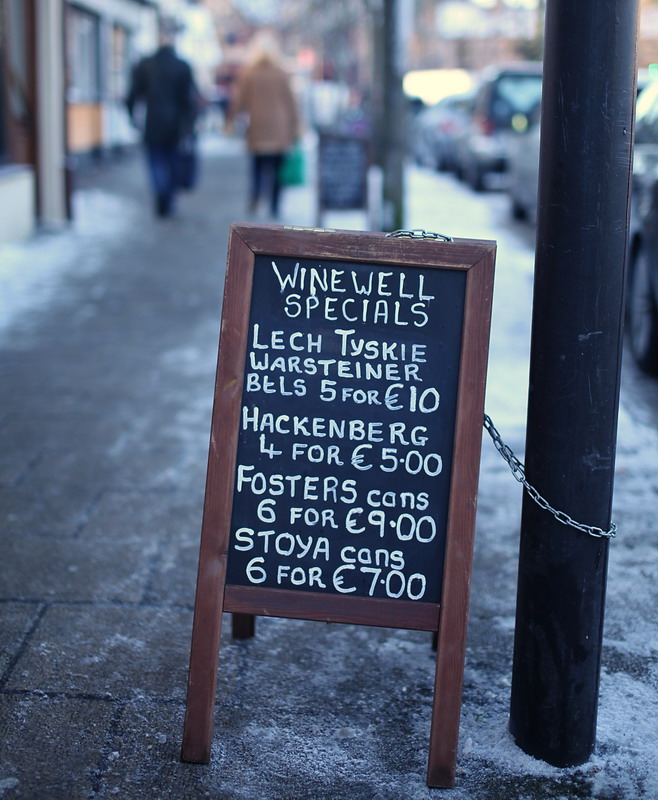 WINEWELL
SPECIALS
LECH TYSKIE
WARSTEINER
BELS 5 FOR €10
HACKENBERG
4 FOR € 5.00
FOSTERS cans
6 FOR €9.00
STOYA cans
6 FOR €7.00